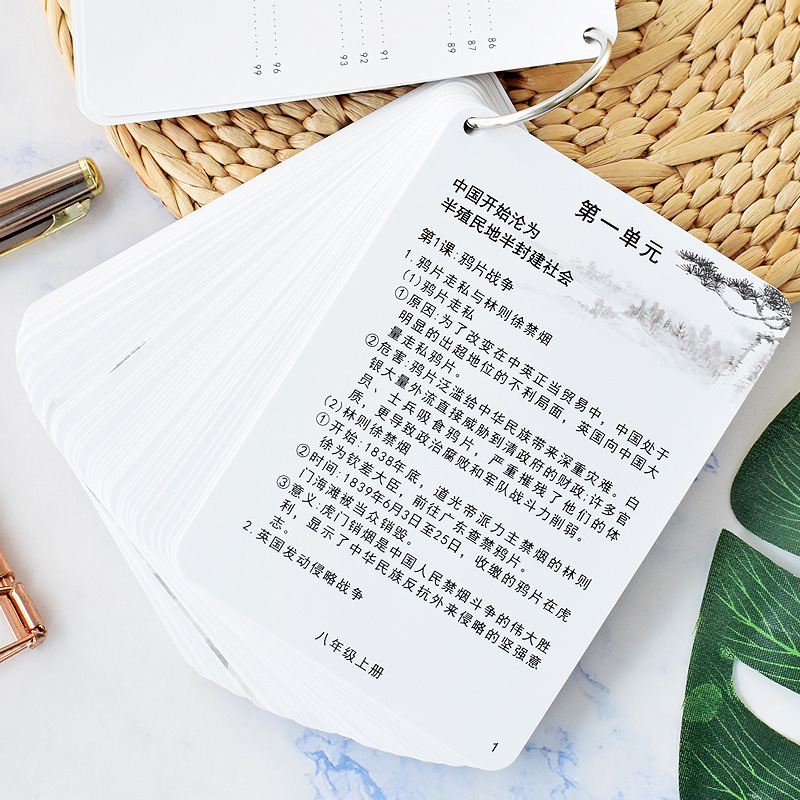 86
87
89
91
92
93
96
99
第一单元
中国开始沦为
半殖民地半封建社会
第1课:鸦片战争
1. 鸦片走私与林则徐禁烟
(1)鸦片走私
①原因:为了改变在中英正当贸易中，中国处于
明显的出超地位的不利局面，英国向中国大
量走私鸦片。
②危害:鸦片泛滥给中华民族带来深重灾难。白
银大量外流直接威胁到清政府的财政;许多官
员、士兵吸食鸦片，严重摧残了他们的体
质、更导致政治腐败和军队战斗力削弱。
(2)林则徐禁烟
①开始:1838年底，道光帝派力主禁烟的林则
徐为钦差大臣，前往广东查禁鸦片。
②时间:1839年6月3日至25日，收缴的鸦片在虎
门海滩被当众销毁。
③意义:虎门销烟是中国人民禁烟斗争的伟大胜
利，显示了中华民族反抗外来侵略的坚强意
志。
2. 英国发动侵略战争
八年级上册
1